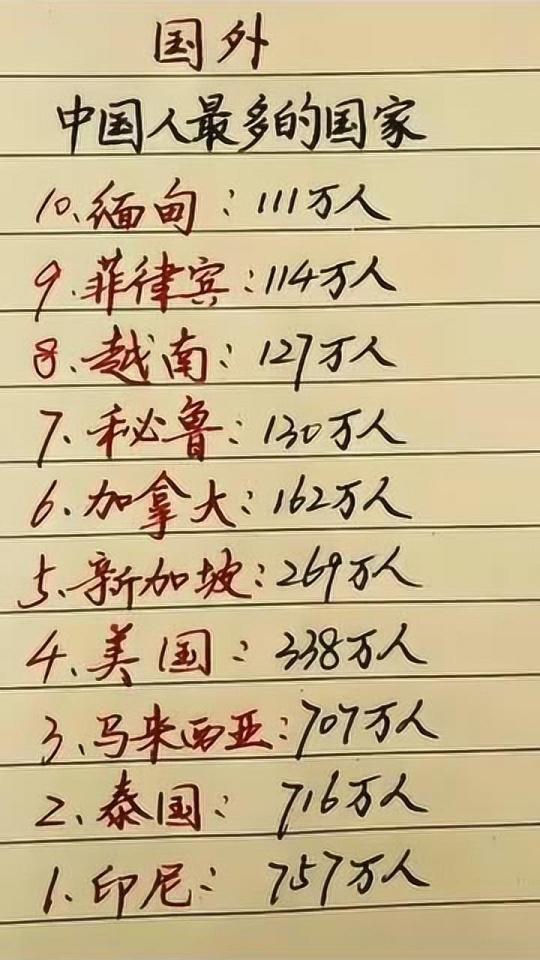 国外
中国人最多的国家
10、缅甸：111万人
9、菲律宾：114万人
8、越南：127万人
7、秘鲁：130万人
6、加拿大：162万人
5、新加坡：269万人
4、美国：338万人
3、马来西亚：707万人
2、泰国：716万人
1、印尼：757万人